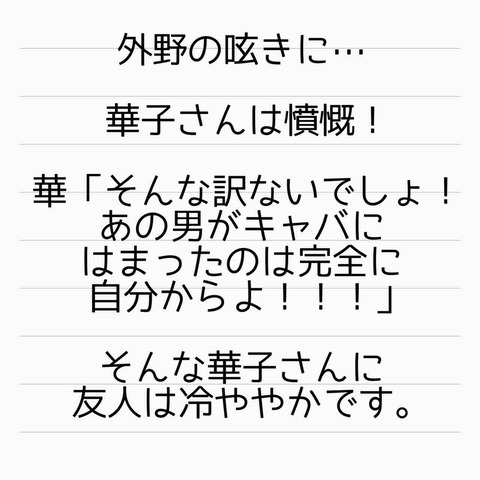 外野の呟きに…
華子さんは憤慨！
華「そんな訳ないでしょ！
あの男がキャバに
はまったのは完全に
自分からよ！！！」
そんな華子さんに
友人は冷ややかです。